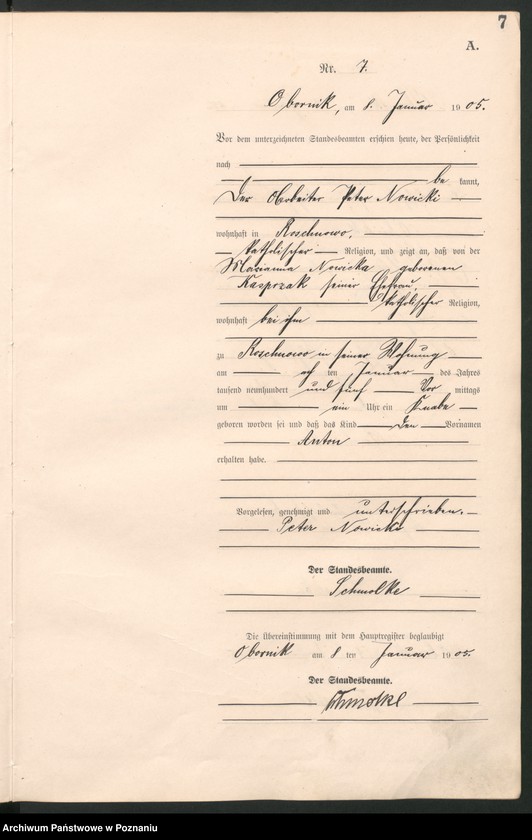 7
A.
Nr. 7.
Obornik, am 8. Januar 1905.
Vor dem unterzeichneten Standesbeamten erschien heute, der Persönlichkeit
nach
be kannt,
Der Arbeiter Peter Nowicki
wohnhaft in Roschnowo,
katholischer Religion, und zeigt an, daß von der
Marianna Nowicka geborenen
Kasprzak seiner Ehefrau,
katholischer Religion,
wohnhaft bei ihm
zu Roschnowo in seiner Wohnung
am ten Januar des Jahres
tausend neunhundert und fünf Vor mittags
um ein Uhr ein Knabe
geboren worden sei und daß das Kind den Vornamen
Anton
erhalten habe.
Vorgelesen, genehmigt und unterschrieben.
Peter Nowicki
Der Standesbeamte.
Schmolke
Die Übereinstimmung mit dem Hauptregister beglaubigt
Obornik am 8 ten Januar 1905.
Der Standesbeamte.
Schmolke
Archiwum Państwowe w Poznaniu